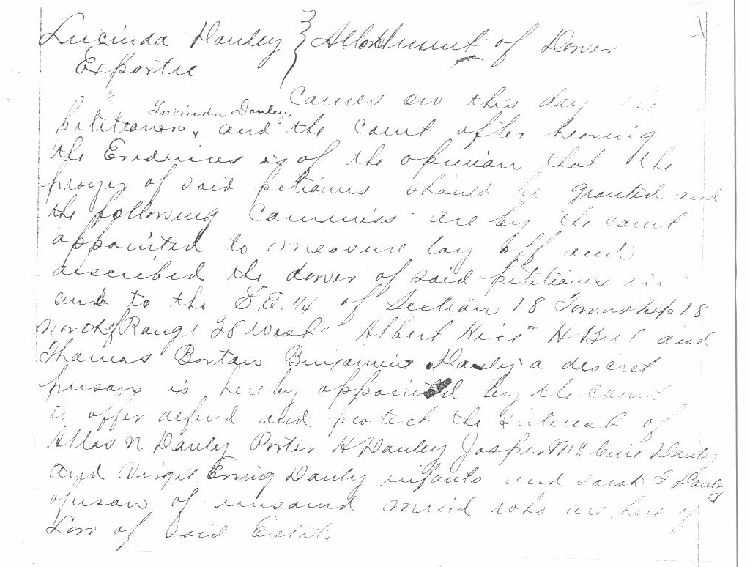 Lucinda Dauley } Allotment of Dower
Exparte
Comes on this day the
petitioner, Lucinda Dauley, and the Court after hearing
the Evidence is of the opinion that the
prayer of said petitioner should be granted and
the following Commiss are by the court
appointed to measure lay off and
described the dower of said petitioner in
and to the S.E. 1/4 of Section 18 Township 18
North of Range 28 West Albert and
Thomas Benjamin Dauley a discret
person is hereby appointed by the Court
to offer defend and protect the interest of
Allas N Dauley Porter H Dauley Jasper McClure Dauley
and Virgil Dauley infants and Sarah F Dauley
a person of unsound mind who are heirs of
Law of Said Estate